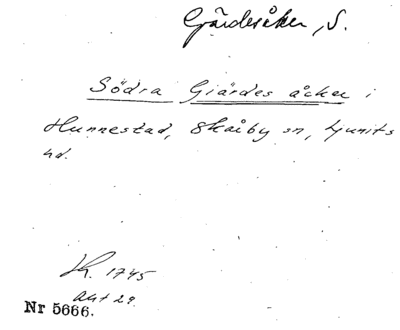 Gärdesåker, S.
Södra Giärdes åcker i
Hunnestad, Skårby sn, Ljunits
hd.
K. 1745
Akt 29.
Nr 5666.